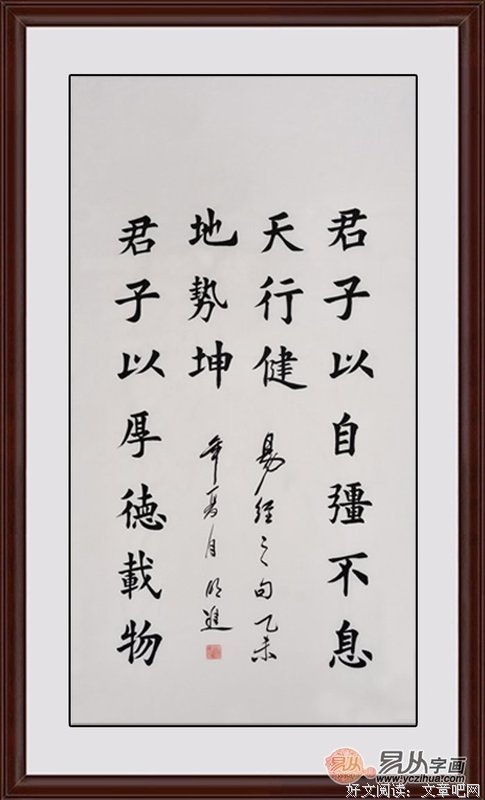 君子以自彊不息
天行健
地勢坤
君子以厚德載物
易經之句乙未
年夏月明進
易从字画
www.yczihua.com
好文阅读：文章吧网